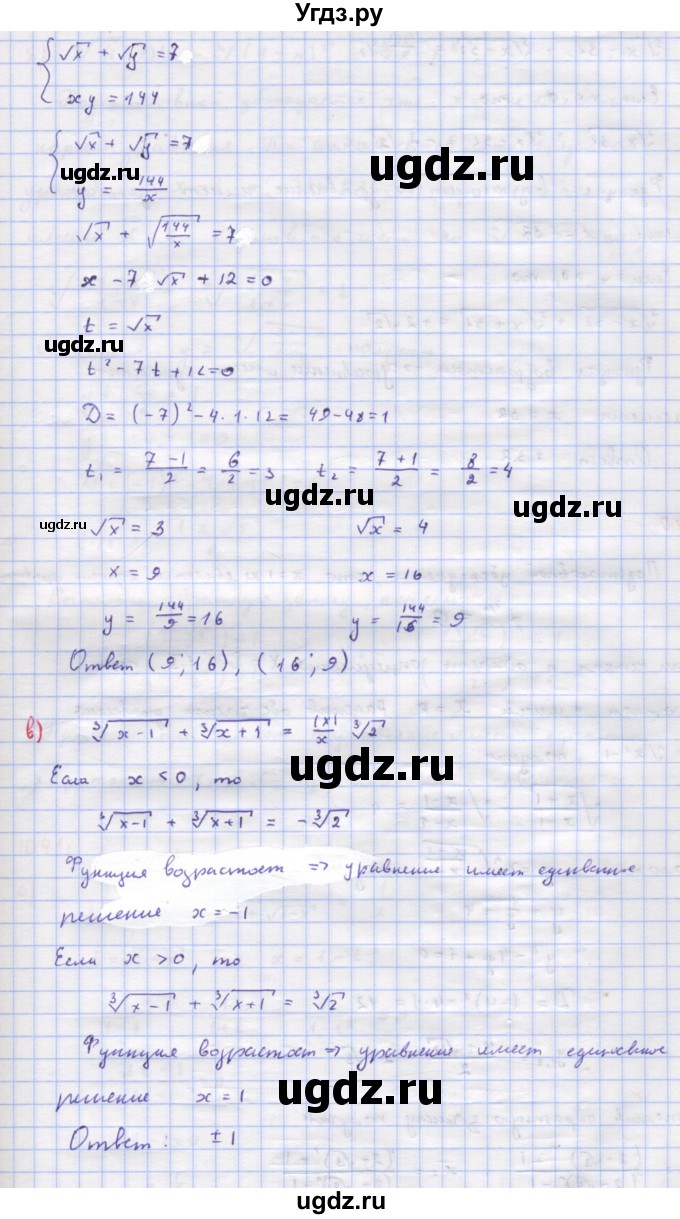 Угдз.ру
√x + √y = 7
xy = 144
√x + √y = 7
ugdz.ru
ugdz.ru
y = 144/x
√x + √(144/x) = 7
x - 7 √x + 12 = 0
t = √x
ugdz.ru
t² - 7t + 12 = 0
D = (-7)² - 4·1·12 = 49 - 48 = 1
t₁ = (7 - 1)/2 = 6/2 = 3 t₂ = (7 + 1)/2 = 8/2 = 4
ugdz.ru
ugdz.ru
ugdz.ru
√x = 3 √x = 4
x = 9 x = 16
y = 144/9 = 16 y = 144/16 = 9
Ответ (9; 16), (16; 9)
в) ∛(x - 1) + ∛(x + 1) = |x|/x ∛2
ugdz.ru
Если x < 0, то
∛(x-1) + ∛(x+1) = -∛2
Функция возрастает => уравнение имеет единственное
решение x = -1
Если x > 0, то
ugdz.ru
∛(x-1) + ∛(x+1) = ∛2
Функция возрастает => уравнение имеет единственное
решение x = 1
ugdz.ru
Ответ: ± 1
ugdz.ru